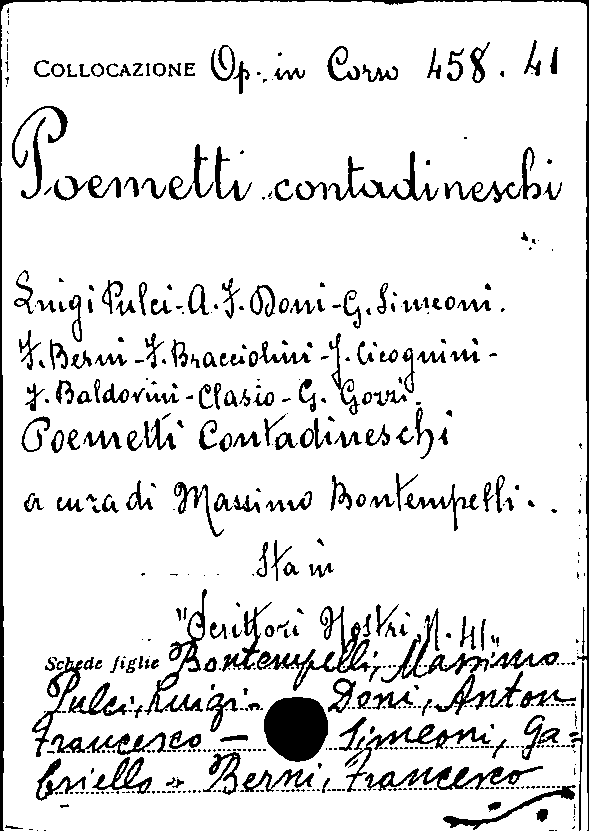 COLLOCAZIONE Op. in Corso 458. 41
Poemetti contadineschi
Luigi Pulci - A. F. Doni - G. Simeoni.
F. Berni - F. Bracciolini - J. Cicognini -
F. Baldovini - Clasio - G. Gozzi.
Poemetti Contadineschi
a cura di Massimo Bontempelli.
Sta in
"Scrittori Nostri N. 41"
Schede figlie Bontempelli, Massimo -
Pulci, Luigi - Doni, Anton
Francesco - Simeoni, Ga=
briello - Berni, Francesco